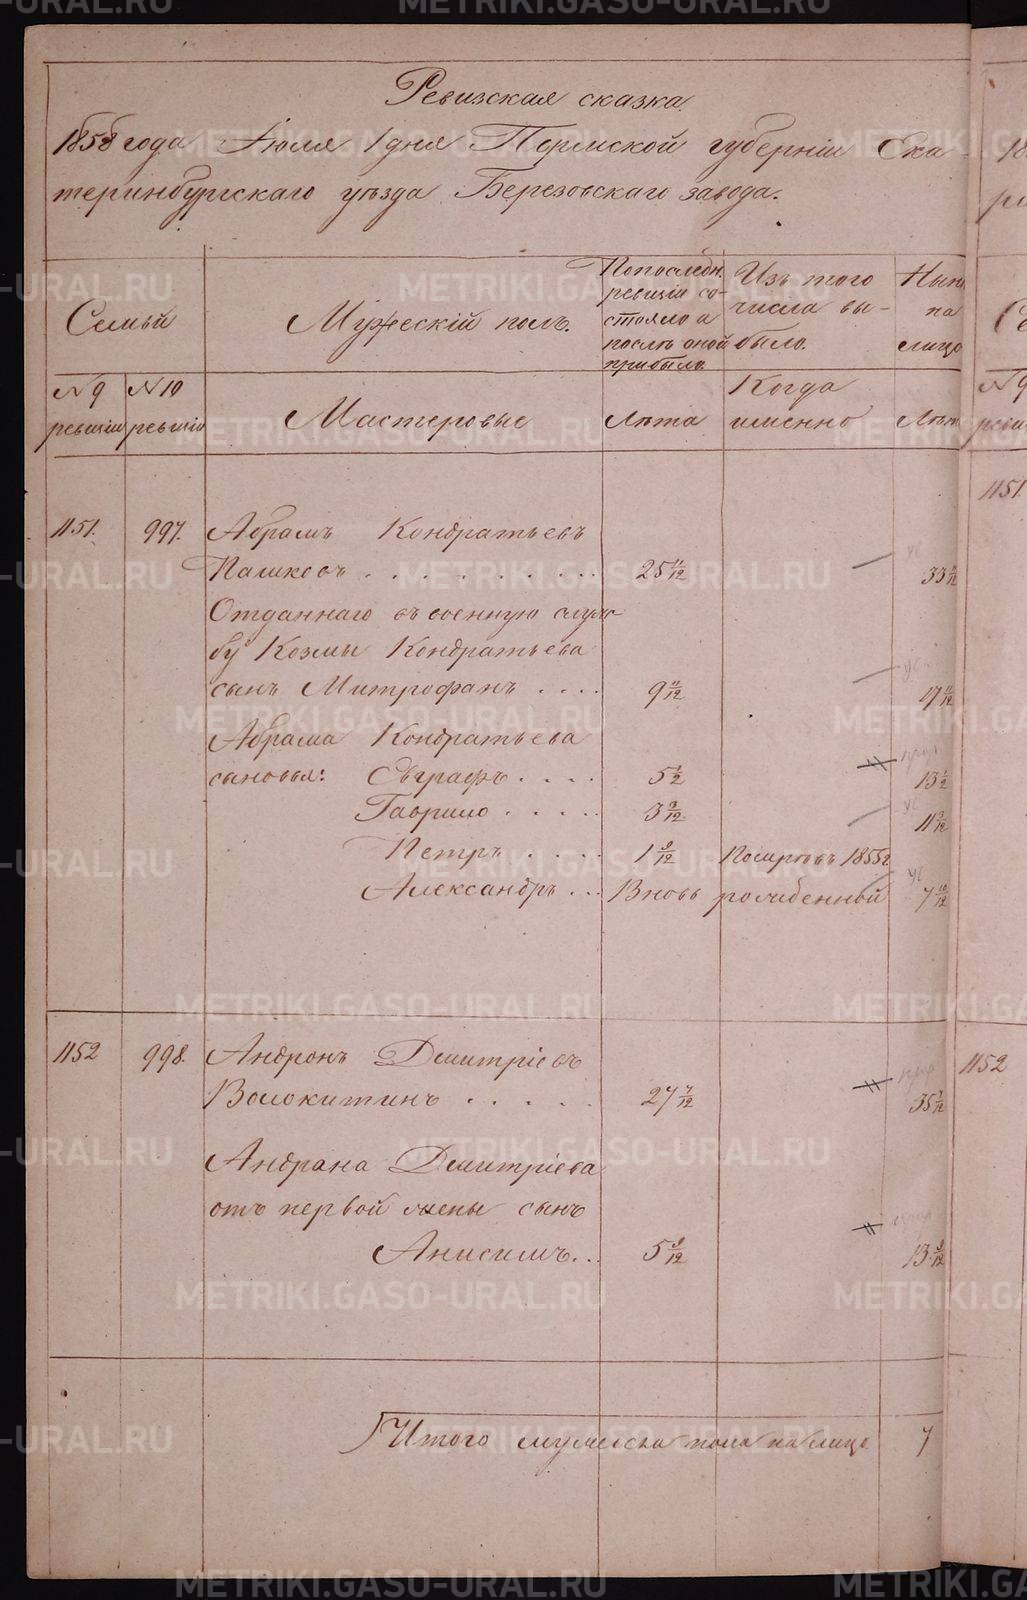 Ревизская сказка
1858 года Июля 1 дня Пермской губернiи Ека-
теринбургскаго уѣзда Березовскаго завода.
Семьи
Мужескiй полъ.
По последн.
ревизiи со-
стояло а
послѣ оной
прибыло.
Изъ того
числа вы-
было.
Нынѣ
на
лицо
№ 9
ревизiи
№ 10
ревизiи
Мастеровые
Лѣта
Когда
именно
Лѣта
1151.
997.
Абрамъ Кондратьевъ
Пашковъ . . . . . . . . . 25 11/12
Отданнаго въ военную служ-
бу Козмы Кондратьева
сынъ Митрофанъ . . . . 9 11/12 17 11/12
Абрама Кондратьева
сыновья: Евграфъ . . . . 5 1/2 13 1/2
Гаврило . . . . . 3 9/12 11 9/12
Петръ . . . . . 1 9/12 Померъ въ 1855 г
Александръ . . . Вновь рожденный 7 10/12
1152
998.
Андронъ Дмитрiевъ
Волокитинъ . . . . . 27 7/12 35 7/12
Андрана Дмитрiева
отъ первой жены сынъ
Анисимъ. . . 5 9/12 13 9/12
Итого мужеска пола на лицо 7
1151.
1152
METRIKI.GASO-URAL.RU